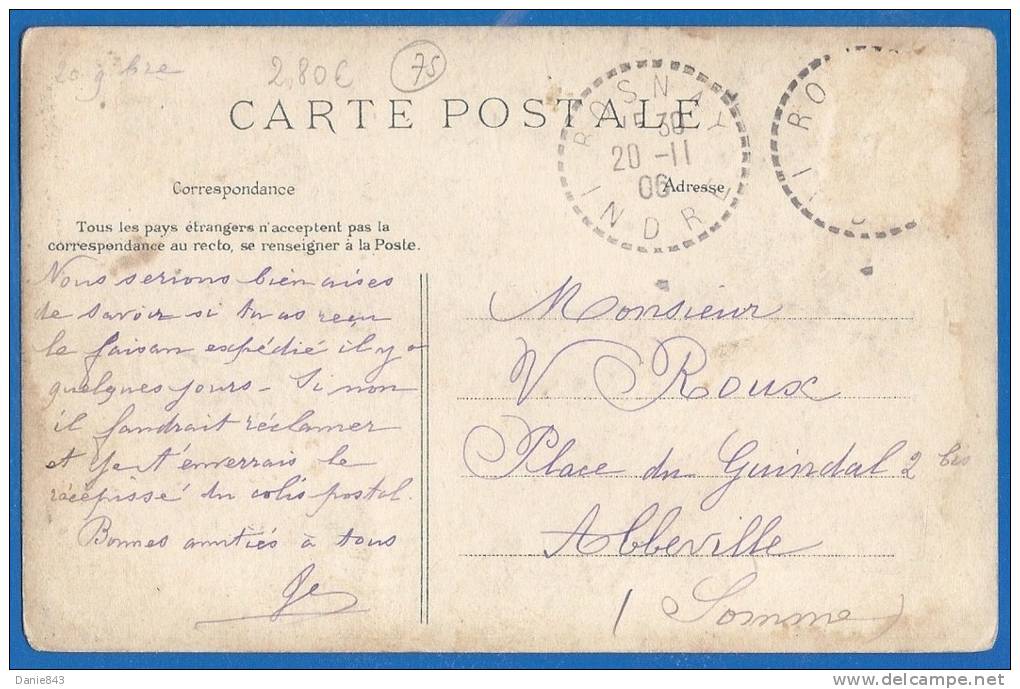 20 9bre
2,80€
75
CARTE POSTALE
ROSNAY
15 30
20 -11
06
INDRE
RO
I
Correspondance
Adresse
Tous les pays étrangers n'acceptent pas la
correspondance au recto, se renseigner à la Poste.
Nous serions bien aises
de savoir si tu as reçu
le faisan expédié il y a
quelques jours - Si non
il faudrait réclamer
et je t'enverrais le
récépissé du colis postal.
Bonnes amitiés à tous
Monsieur
V Roux
Place du Guindal 2 bis
Abbeville
(Somme)
Danie843
www.delcampe.net